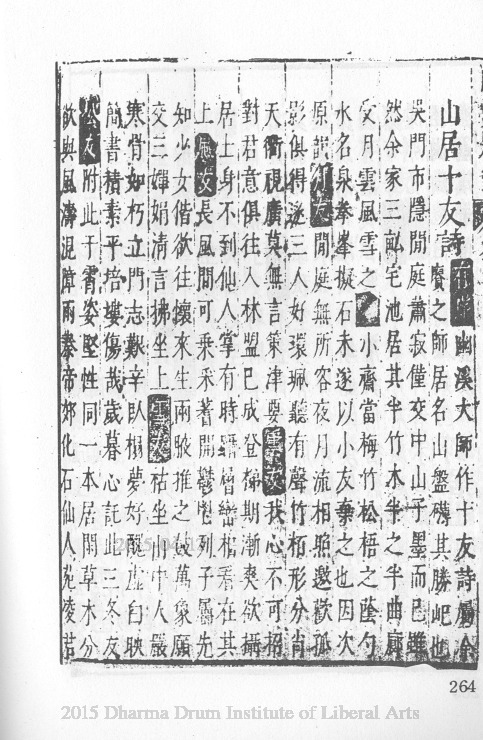 山居十友詩 幽溪大師作十友詩屬余
賡之師居名山盤礡其勝屺也
吳門市隱閒庭蕭寂僅交中山子墨而已雖
然余家三畝宅池居其半竹木半之半曲廊
受月雲風雪之 小齋當梅竹松梧之蔭勺
水名泉拳峯擬石未遂以小友棄之也因次
原韻 閒庭無所容夜月流相照邀歡孤
影俱得遂三人好環珮聽有聲竹栢形分肖
天衢視廣莫無言策津要 我心不可招
對君意俱往入林盟已成登梯期漸爽欲攝
居士身不到仙人掌有時 看在其
上 長風間可乘采著開鬱 列子屬先
知少女偕欲往懷來生兩腋推之 萬象願
交三嬋娟清言拂坐上 枯坐山中人嚴
寒骨如朽立門志艱辛臥榻夢好醜虛白映
簡書積素平培塿傷哉歲暮心託此三冬友
附此干霄姿堅性同一本居閒草木分
欲與風濤混障雨 帝郊化石仙人苑凌苕
264
2015 Dharma Drum Institute of Liberal Arts